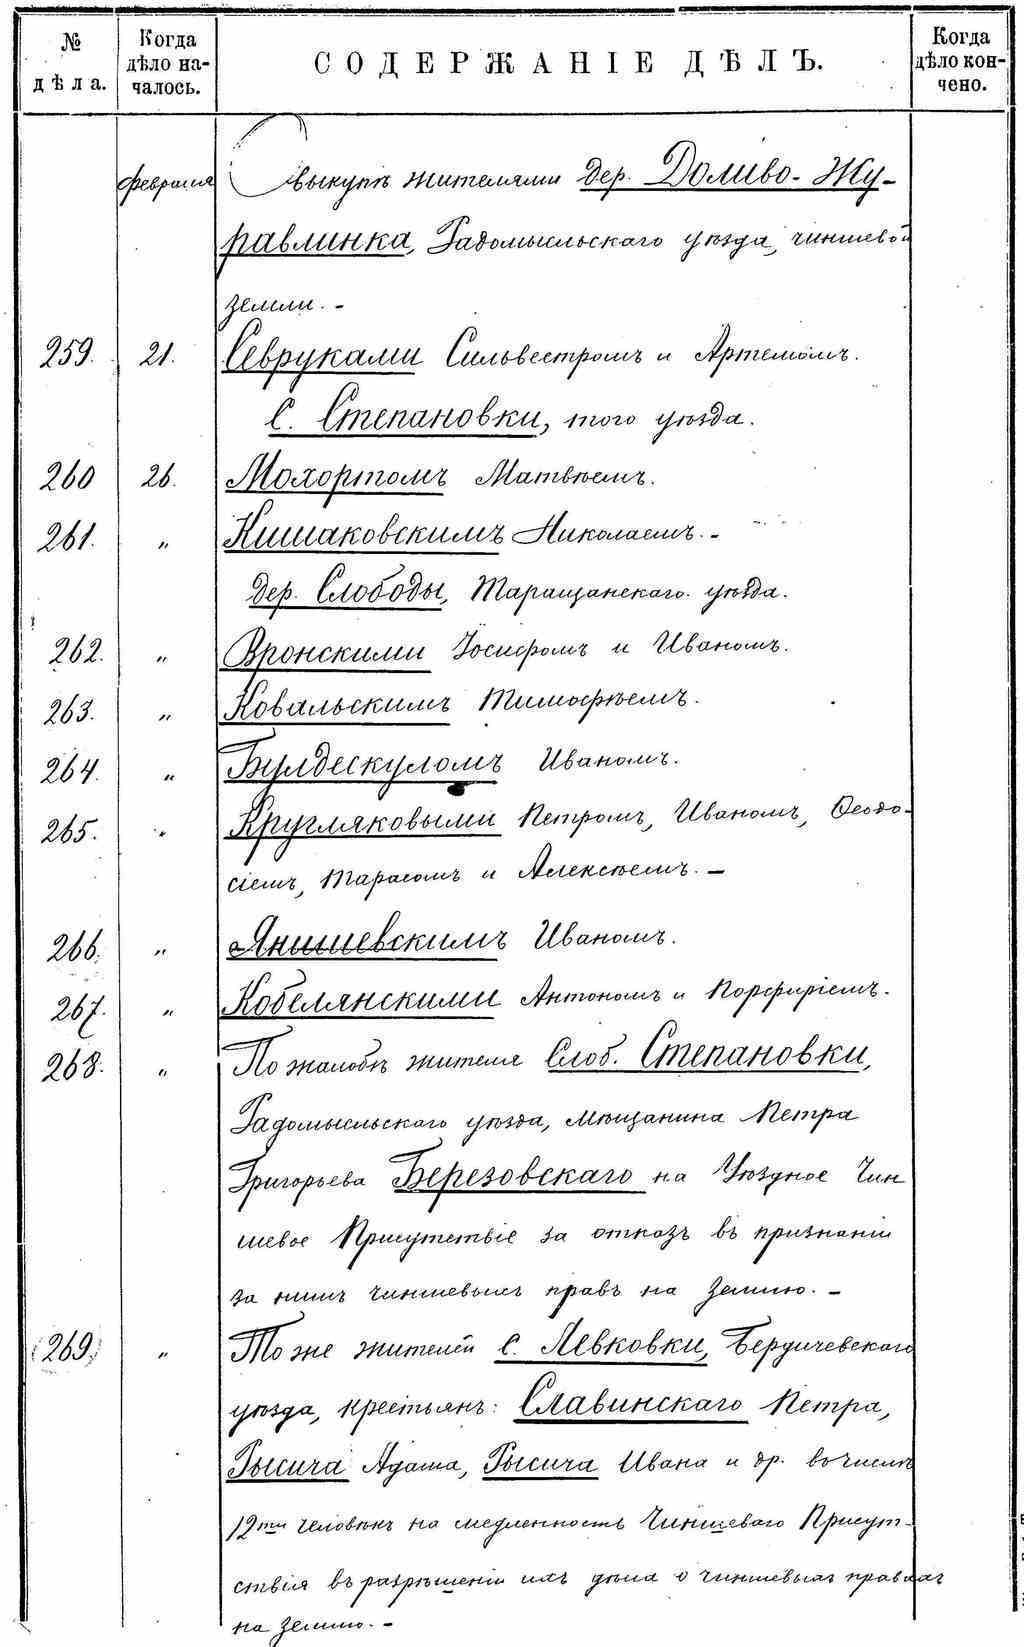 № дѣла.
Когда дѣло на-
чалось.
СОДЕРЖАНІЕ ДѢЛЪ.
Когда дѣло кон-
чено.
февраля О выкупѣ жителями дер. Доливо-Жу-
равлинка, Радомысльскаго уѣзда, чиншевой
земли. -
259. 21. Севруками Сильвестромъ и Артемомъ.
С. Степановки, того уѣзда.
260 26. Мохортомъ Матвѣемъ.
261. „ Кишаковскимъ Николаемъ. -
дер. Слободы, Таращанскаго уѣзда.
262. „ Вронскими Іосифомъ и Иваномъ.
263. „ Ковальскимъ Тимофѣемъ.
264. „ Булдескуломъ Иваномъ.
265. „ Кругляковыми Петромъ, Иваномъ, Ѳеодо-
сіемъ, Тарасомъ и Алексѣемъ. -
266. „ Янишевскимъ Иваномъ.
267. „ Кобелянскими Антономъ и Порфиріемъ.
268. „ По жалобѣ жителя Слоб. Степановки,
Радомысльскаго уѣзда, мѣщанина Петра
Григорьева Березовскаго на Уѣздное Чин
шевое Присутствіе за отказъ въ признаніи
за нимъ чиншевыхъ правъ на землю. -
269. „ Тоже жителей с. Левковки, Бердичевскаго
уѣзда, крестьянъ: Славинскаго Петра,
Рысича Адама, Рысича Ивана и др. въ числѣ
12ти человѣкъ на медленность Чиншеваго Присут-
ствія въ разрѣшеніи ихъ дѣла о чиншевыхъ правахъ
на землю. -